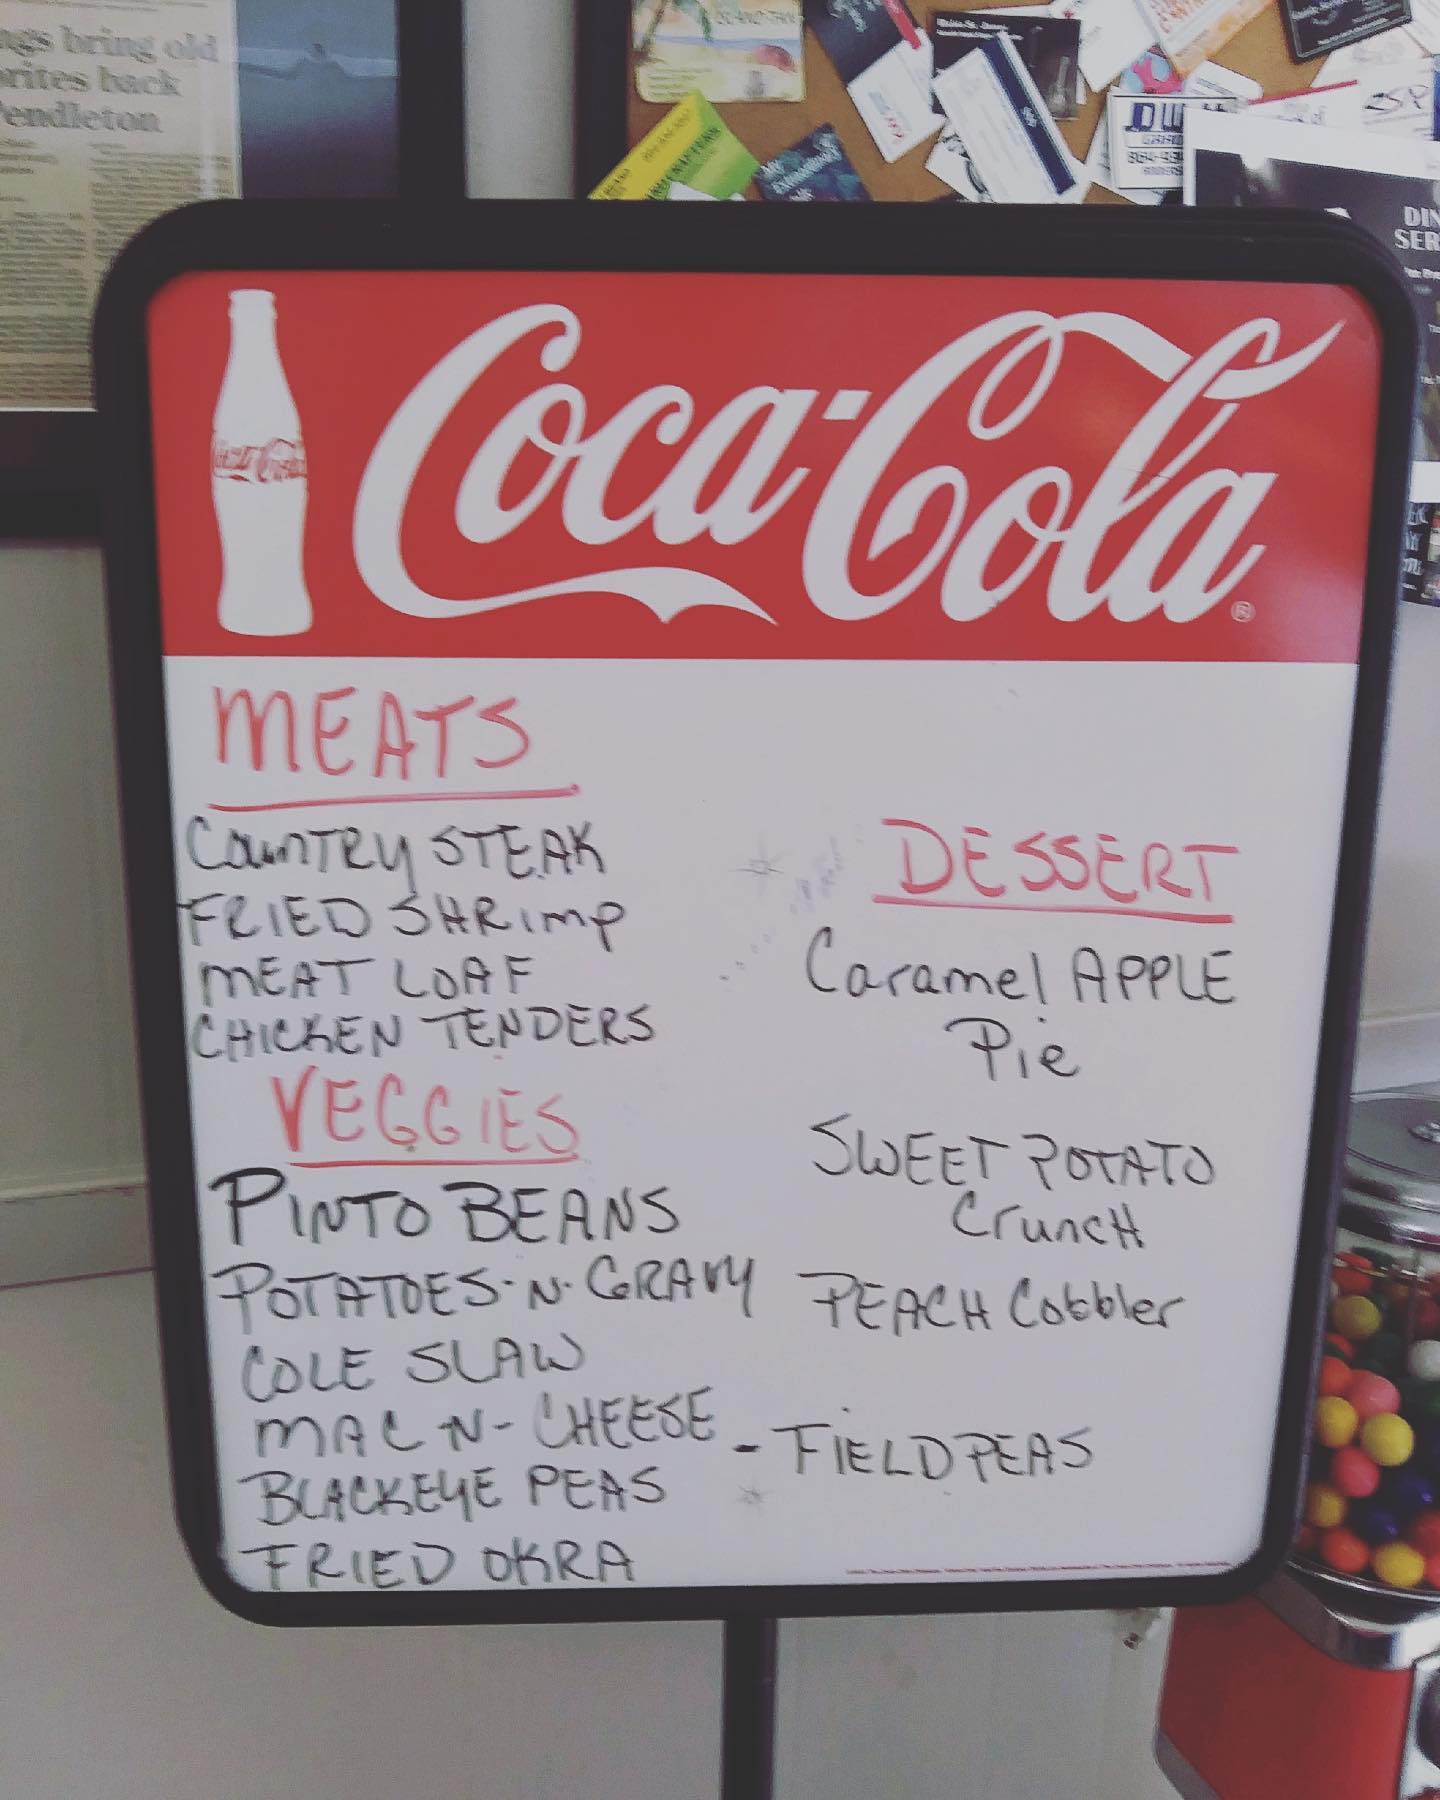 ngs bring old
orites back
Pendleton
DIN
SER
Coca-Cola
Coca-Cola
MEATS
COUNTRY STEAK
FRIED SHRIMP
MEAT LOAF
CHICKEN TENDERS
VEGGIES
PINTO BEANS
POTATOES-N-GRAVY
COLE SLAW
MAC N- CHEESE
BLACKEYE PEAS
FRIED OKRA
DESSERT
Caramel APPLE
Pie
SWEET POTATO
CruncH
PEACH Cobbler
- FIELD PEAS